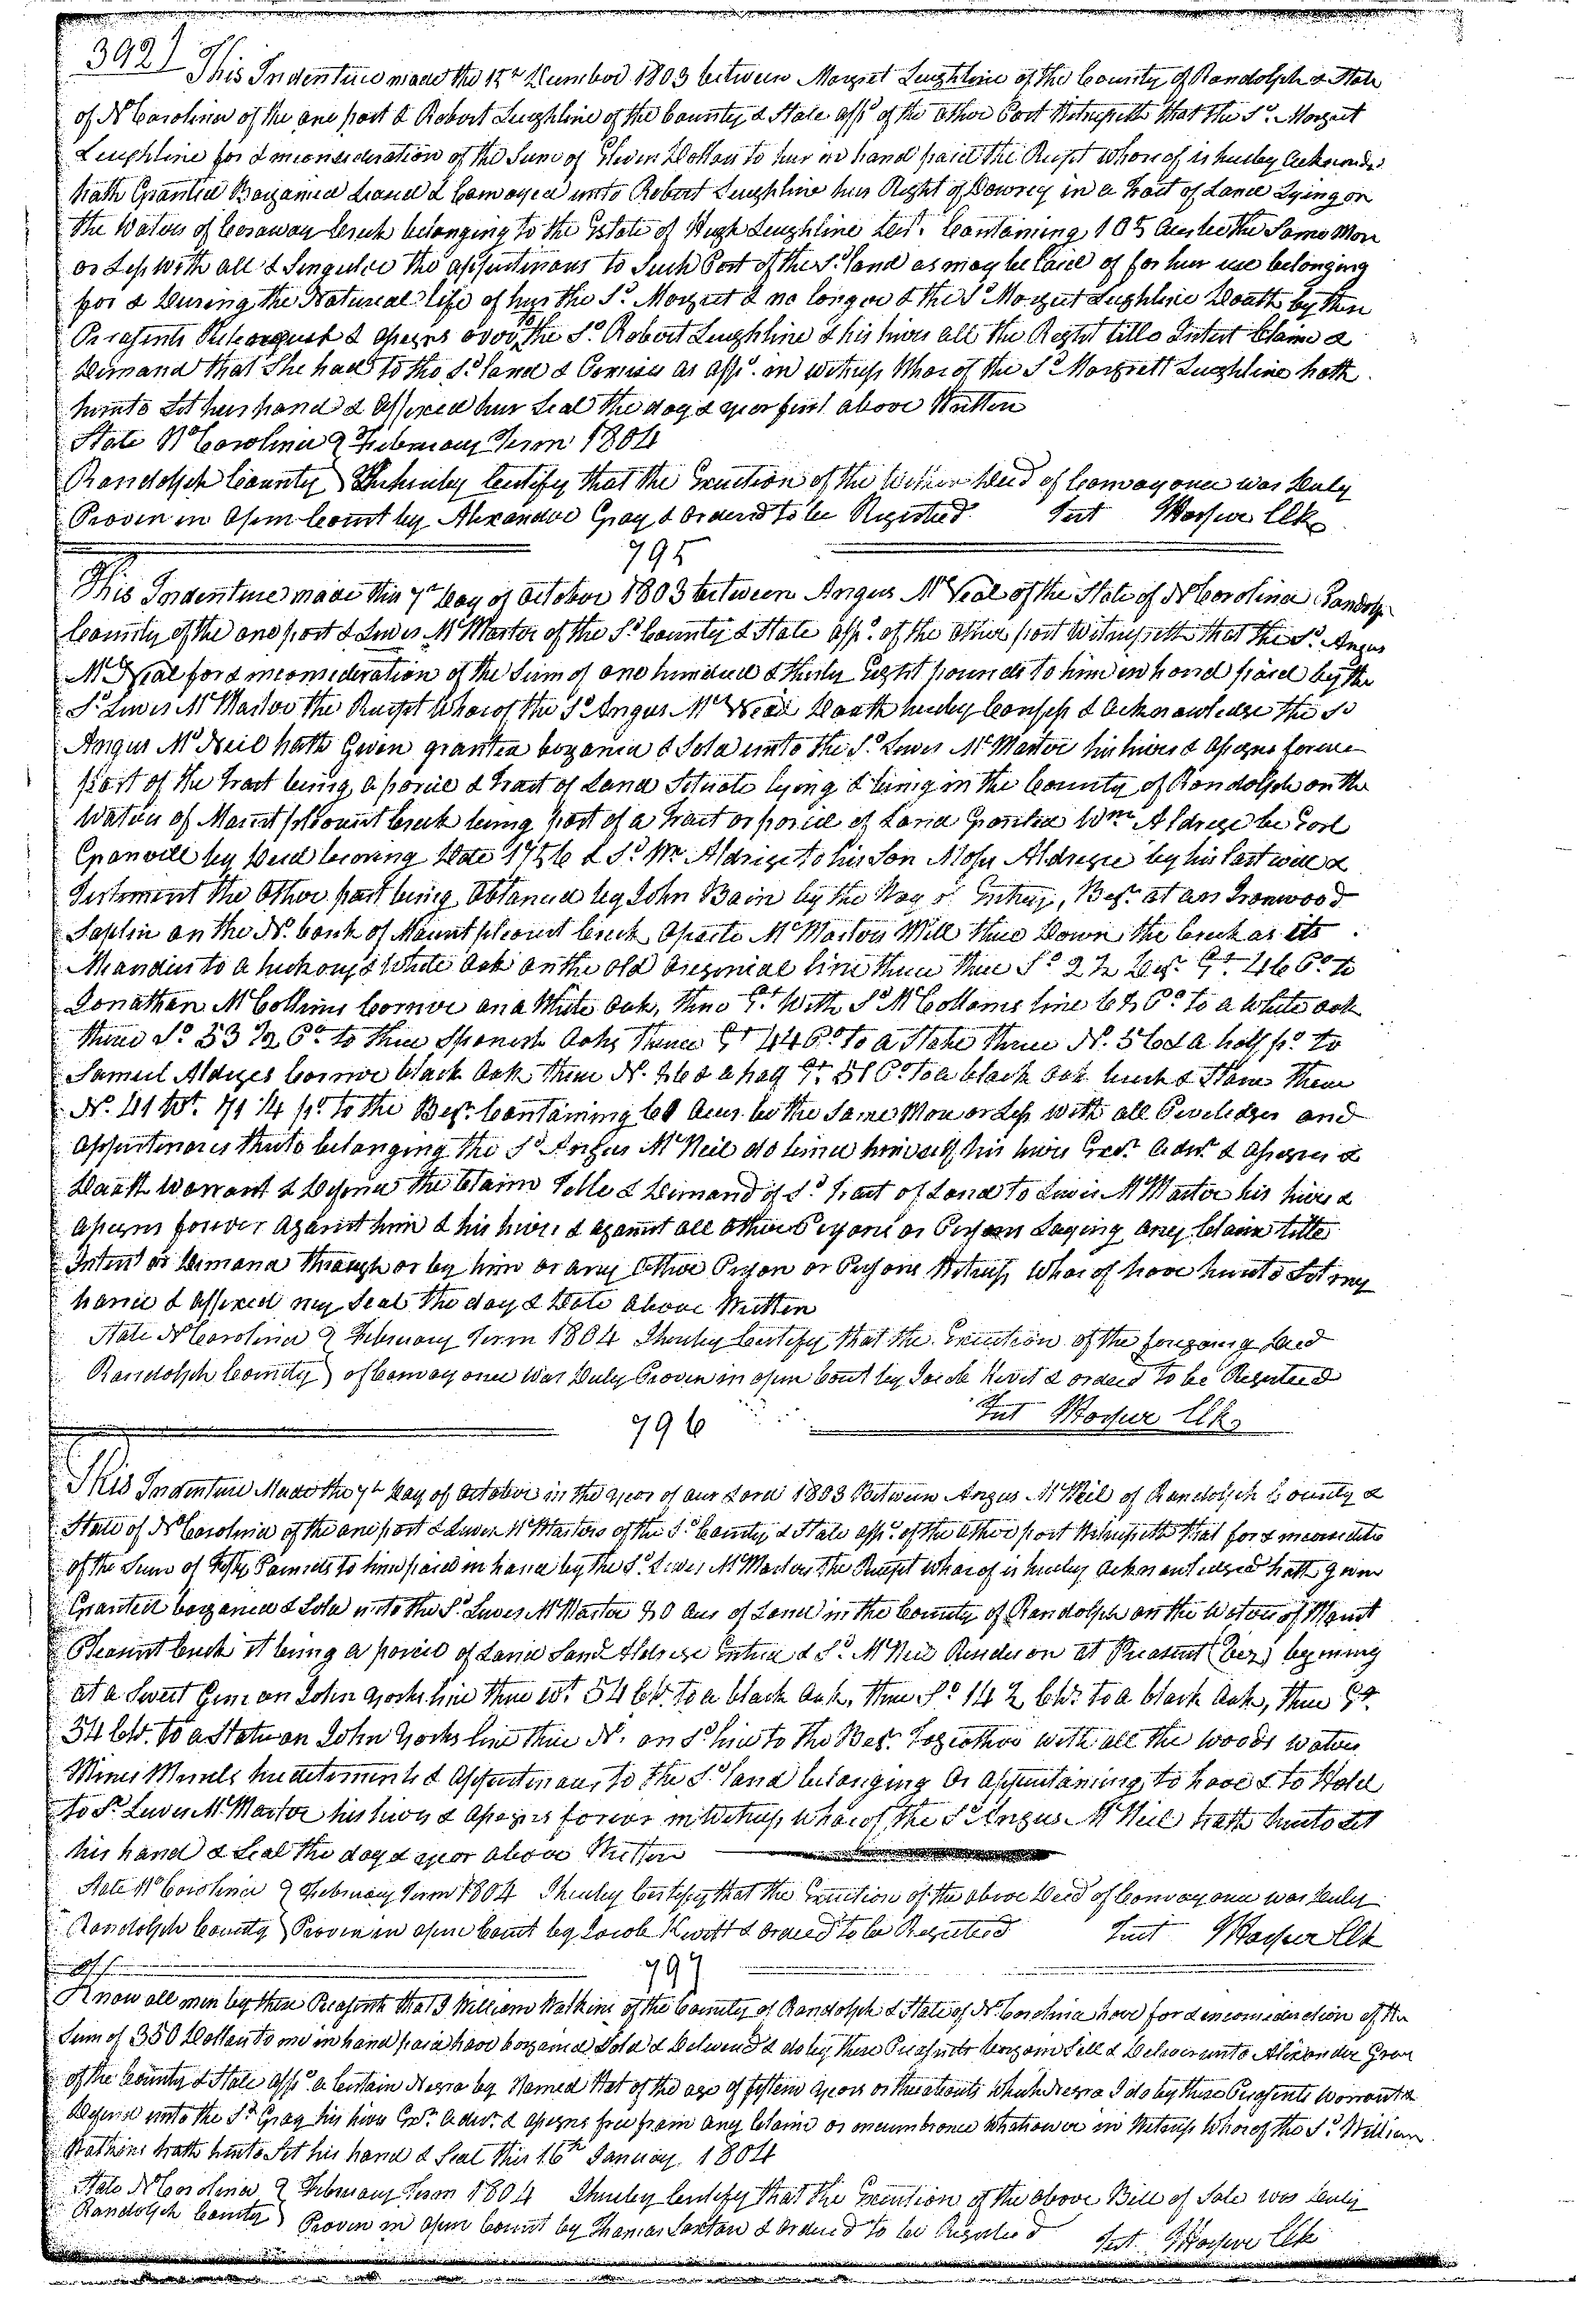 392)
This Indenture made the 12th December 1803 between Margret Lughline of the County of Randolph & State
of N Carolina of the one part & Robert Lughline of the County & State affd. of the other Part Witnesseth that the Sd. Margret
Lughline for & in consideration of the Sum of Eleven Dollars to her in hand paid the Recept whareof is hereby Acknowledgd
hath Granted Bargained Leased & Convayed unto Robert Lughline her Right of Dowrey in a Tract of Land Lying on
the Waters of Caraway Creek belonging to the Estate of Hugh Lughline Decd. Containing 105 Acres be the Same More
or Less With all & Singular the appurtinans to Such Part of the Sd. land as may be laid of for her use belonging
for & During the Natureal life of her the Sd. Margret & no longer & the Sd Margret Lughline Doath by these
Presents Relenquesh & assigns over to the Sd. Robert Lughline & his heirs all the Reght title Intest Claim &
Demand that She had to the Sd. land & Premises as affd. in witness Whareof the Sd Margrett Lughline hath
hereunto Set her hand & affixed her Seal the day & year first above Written
State N Carolina } February Term 1804
Randolph County } I hereby Certify that the Execution of the within Deed of Convayance was Duly
Proven in Open Court by Alexander Gray & Ordered to be Registred Test JHarper Clk
795
This Indenture made this 7th Day of October 1803 between Angus McNeal of the State of N Carolina Randolp
County of the one part & Lewis McMaster of the Sd. County & State affd. of the other part Witnesseth that the Sd. Angus
McNeal for & in consideration of the Sum of one hundred & therty Eight pounds to him in hand paid by the
Sd. Lewis McMaster the Recept Whareof the Sd Angus McNeal Doath hereby Confess & Acknowledge the Sd
Angus McNeil hath Given granted bargania & Sold unto the Sd. Lewis McMaster his heires & assigns forever
Part of the Tract being a parcel & Tract of Land Situate lying & being in the County of Randolph on the
Waters of Mount pleasant Creek being part of a Tract or parcel of Land Granted Wm Aldrege be Earl
Granvill by Deed bearing Date 1756 & Sd. Wm Aldrige to his Son Moses Aldregie by his last will &
Testement the Other part being Obtaned by John Bain by the Way of Entrey, Begg. at an Ironwood
Saplin on the N. bank of Mount pleasant Creek aposite McMasters Mill thence Down the Creek as its
Meanders to a heckory & White Oak on the old oregonial line thence thence So 22 Deg. Et. 46 Po. to
Jonathan McCollums Corner on a White Oak, thence Et. With Sd McCollams line 65 Po. to a White oak
thence So 53 1/2 Po. to three Spanesh Oaks thence Et 44 Po. to a Stake thence N. 56 & a half po. to
Samuel Aldreges Corner black Oak thence N. 46 & a half Et. 51 Po. to a black oak bush & Stone thence
N. 41 Wt. 71 1/4 po. to the Begg. Containing 60 Acres be the Same More or Less with all Preveledges and
Appurtenances thereto belonging the Sd Angus McNeil do bind himself his heirs Exr. Admr. & assigns &
Doath Warrant & Defend the Claim Title & Demand of Sd. Tract of Land to Lewis McMaster his heires &
assigns forever against him & his heires & against all other Persons or Persons Laying any Claim title
Intrest or Demand through or by him or any Other Person or Persons Witness Whareof have hereunto Set my
hand & affixed my Seal the day & Date above Written
State N Carolina } February Term 1804 I hereby Certify that the Execution of the foregoing Deed
Randolph County } of Convayance was Duly Proven in open Court by Jacob Hevit & ordered to be Registered
Test JHarper Clk
796
This Indenture Made the 7th Day of October in the year of our Lord 1803 Between Angus McNeil of Randolph County &
State of N Carolina of the one part & Lewis McMasters of the Sd. County & State affd. of the other part Witnesseth that for & in consideration
of the Sum of Fifty Pounds to him paid in hand by the Sd. Lewis McMasters the Recept whareof is hereby acknowledged hath given
Granted bargained & Sold unto the Sd. Lewis McMaster 50 Acres of Land in the County of Randolph on the Waters of Mount
Pleasant Creek it being a parcel of Land Saml Aldrege Entred & Sd. McNeil Resides on at Preasent (viz) begining
at a Sweet Gum on John Yorks line thence Wt. 54 Cd. to a black Oak, thence So 14 2 Cd. to a black Oak, thence Et.
54 Cd. to a Stake on John Yorks line thence N. on Sd line to the Begg. Together with all the woods waters
Mines Minrels heredetements & Appurtenans to the Sd. land belonging Or Appurtaining to have & to Hold
to Sd. Lewis McMaster his heirs & assigns forever in Witness whareof the Sd Angus McNeil hath hereunto Set
his hand & Seal the day & year above Written
State N Carolina } February Term 1804 I hereby Certefy that the Execution of the above Deed of Convayance was Duly
Randolph County } Proven in open Court by Jacob Hevitt & ordered to be Registered Test JHarper Clk
797
Know all men by these Preasents that I William Watkins of the County of Randolph & State of N. Carolina have for & in consideration of the
Sum of 350 Dollars to me in hand paid have bargained Sold & Delivered & do by these Preasents bargain Sell & Deliver unto Alexander Gray
of the County & State affd. a Certain Negro boy Named Nat of the age of fifteen years or thereabouts which Negro I do by these Presents Warrant &
Defend unto the Sd. Gray his heirs Exr. Admr. & assigns free from any Claim or incumbrance whatsover in Witness Whareof the Sd. William
Watkins hath hereunto Set his hand & Seal this 16th January 1804
State N Carolina } February Term 1804 I hereby Certify that the Execution of the above Bill of Sale was Duly
Randolph County } Proven in open Court by Thomas Saxton & Ordered to be Registered Test JHarper Clk